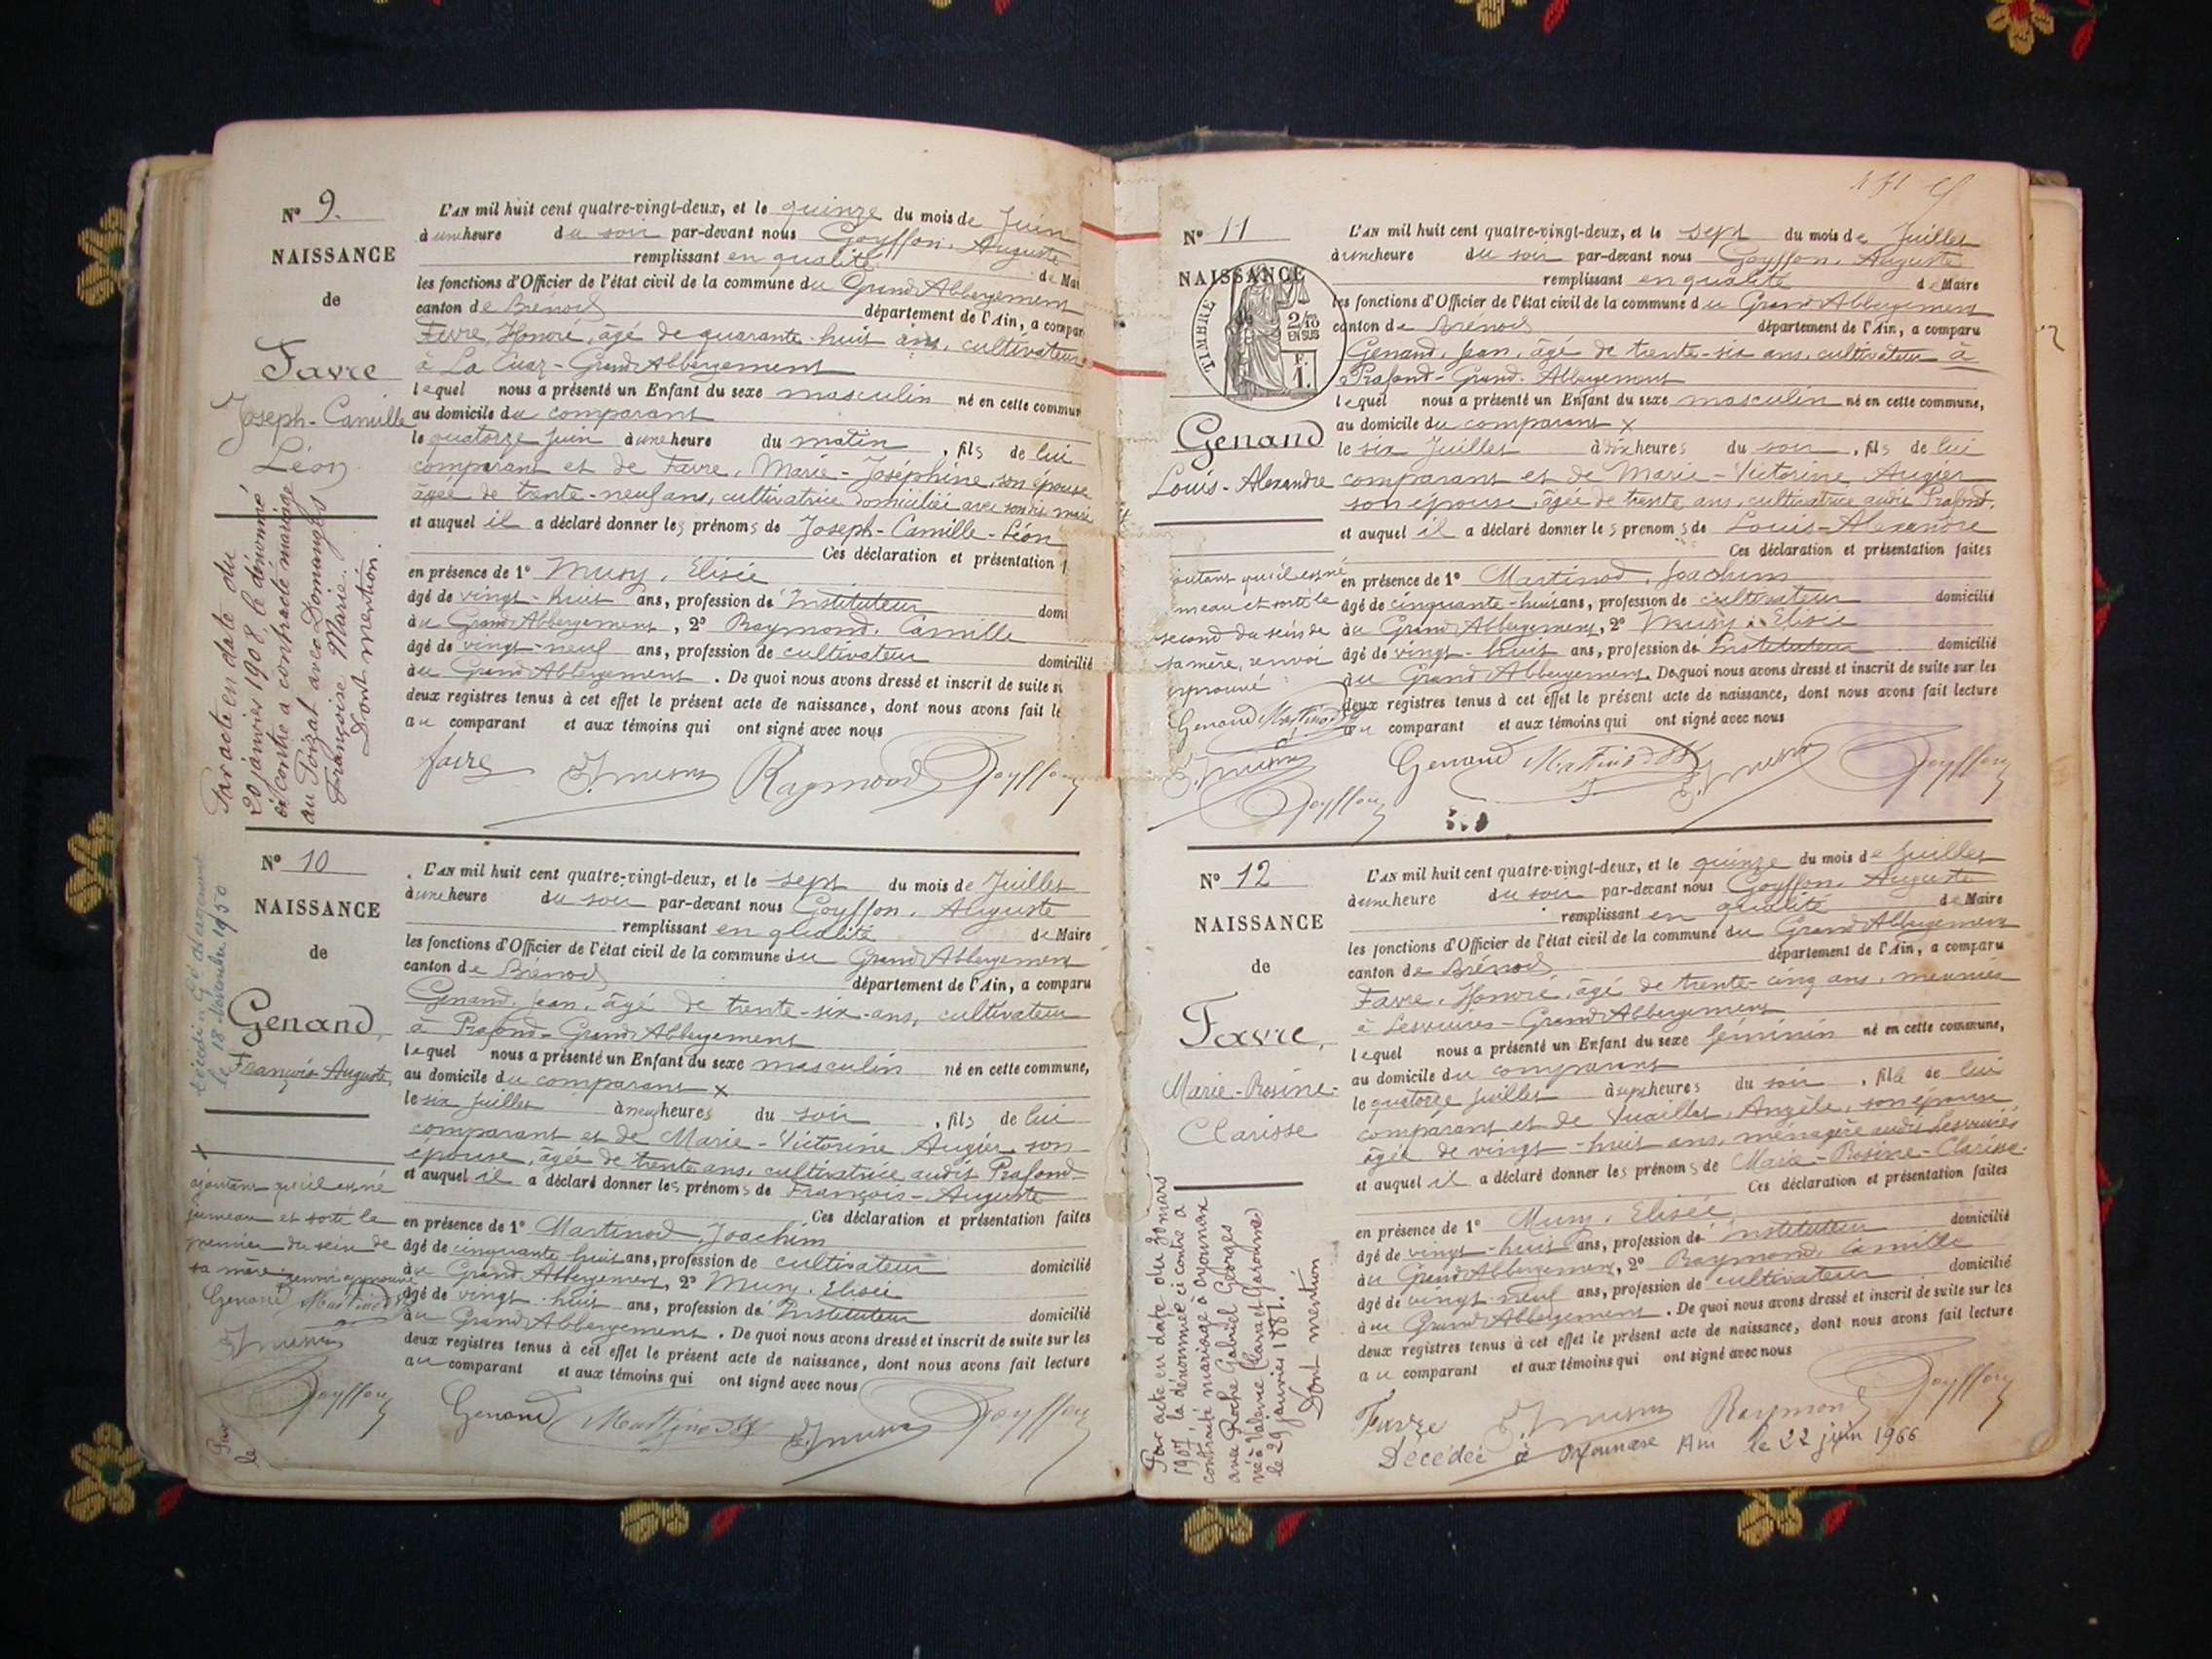 N° 9.
NAISSANCE
de
Favre
Joseph-Camille
Léon
Par acte en date du
20 janvier 1908, le dénommé
ci contre a contracté mariage
au Poizat avec Domanges
Françoise Marie.
Dont mention.
L'AN mil huit cent quatre-vingt-deux, et le quinze du mois de Juin
à une heure du soir par-devant nous Goyffon, Auguste
remplissant en qualité de Mai
les fonctions d'Officier de l'état civil de la commune du Grand Abbergement
canton de Brénod département de l'Ain, a compar
Favre, Honoré, âgé de quarante-huit ans, cultivateur
à La Cuaz - Grand Abbergement
lequel nous a présenté un Enfant du sexe masculin né en cette commun
au domicile du comparant
le quatorze Juin à une heure du matin, fils de lui
comparant et de Favre, Marie-Joséphine, son épouse
âgée de trente-neuf ans, cultivatrice domiciliée avec son dit mari
et auquel il a déclaré donner les prénoms de Joseph-Camille-Léon
Ces déclaration et présentation f
en présence de 1° Musy, Elisée
âgé de vingt-huit ans, profession de Instituteur domi
au Grand Abbergement, 2° Raymond, Camille
âgé de vingt-neuf ans, profession de cultivateur domicilié
au Grand Abbergement. De quoi nous avons dressé et inscrit de suite s
deux registres tenus à cet effet le présent acte de naissance, dont nous avons fait le
au comparant et aux témoins qui ont signé avec nous
favre E. Musy Raymond Goyffon
N° 10
NAISSANCE
de
Genand,
François-Auguste,
décédé à Gd abergement
le 18 décembre 1950
x
ajoutant qu'il est né
jumeau et sorti le
premier du sein de
sa mère, renvoi approuvé
Genand Martinod
E. Musy
Goyffon
L'AN mil huit cent quatre-vingt-deux, et le sept du mois de Juillet
à une heure du soir par-devant nous Goyffon, Auguste
remplissant en qualité de Maire
les fonctions d'Officier de l'état civil de la commune du Grand Abbergement
canton de Brénod département de l'Ain, a comparu
Genand, Jean, âgé de trente-six-ans, cultivateur
à Prafond-Grand Abbergement
lequel nous a présenté un Enfant du sexe masculin né en cette commune,
au domicile du comparant x
le six Juillet à neuf heures du soir, fils de lui
comparant et de Marie-Victorine Augier, son
épouse, âgée de trente ans, cultivatrice audit Prafond
et auquel il a déclaré donner les prénoms de François-Auguste
Ces déclaration et présentation faites
en présence de 1° Martinod, Joachim
âgé de cinquante huit ans, profession de cultivateur domicilié
au Grand Abbergement, 2° Musy, Elisée
âgé de vingt-huit ans, profession de Instituteur domicilié
au Grand Abbergement. De quoi nous avons dressé et inscrit de suite sur les
deux registres tenus à cet effet le présent acte de naissance, dont nous avons fait lecture
au comparant et aux témoins qui ont signé avec nous
Genand Martinod E. Musy Goyffon
N° 11
NAISSANCE
TIMBRE
2/10
EN SUS
F.
1.
Genand
Louis-Alexandre
sa mère, renvoi
approuvé
Genand Martinod
E. Musy
Goyffon
L'AN mil huit cent quatre-vingt-deux, et le sept du mois de Juillet
à une heure du soir par-devant nous Goyffon, Auguste
remplissant en qualité de Maire
les fonctions d'Officier de l'état civil de la commune du Grand Abbergement
canton de Brénod département de l'Ain, a comparu
Genand, Jean, âgé de trente-six ans, cultivateur à
Prafond-Grand-Abbergement
lequel nous a présenté un Enfant du sexe masculin né en cette commune,
au domicile du comparant x
le six Juillet à dix heures du soir, fils de lui
comparant et de Marie-Victorine Augier
son épouse, âgée de trente ans, cultivatrice audit Prafond.
et auquel il a déclaré donner les prénoms de Louis-Alexandre
Ces déclaration et présentation faites
en présence de 1° Martinod, Joachim
âgé de cinquante-huit ans, profession de cultivateur domicilié
au Grand Abbergement, 2° Musy, Elisée
âgé de vingt-huit ans, profession de Instituteur domicilié
au Grand Abbergement. De quoi nous avons dressé et inscrit de suite sur les
deux registres tenus à cet effet le présent acte de naissance, dont nous avons fait lecture
au comparant et aux témoins qui ont signé avec nous
Genand Martinod E. Musy Goyffon
N° 12
NAISSANCE
de
Favre,
Marie-Rosine-
Clarisse
Par acte en date du 30 mars
1907, la dénommée ci contre a
contracté mariage à Oyonnax
avec Roche Gabriel Georges
né à Valence (Tarn et Garonne)
le 29 janvier 1881.
Dont mention
L'AN mil huit cent quatre-vingt-deux, et le quinze du mois de Juillet
à une heure du soir par-devant nous Goyffon, Auguste
remplissant en qualité de Maire
les fonctions d'Officier de l'état civil de la commune du Grand Abbergement
canton de Brénod département de l'Ain, a comparu
Favre, Honoré, âgé de trente-cinq ans, meunier
à Lesvuires-Grand Abbergement
lequel nous a présenté un Enfant du sexe féminin né en cette commune,
au domicile du comparant
le quatorze juillet heures du soir, fille de lui
comparant et de Vuaillat, Angèle, son épouse
âgée de vingt-huit ans, ménagère audit Lesvuires
et auquel il a déclaré donner les prénoms de Marie-Rosine-Clarisse.
Ces déclaration et présentation faites
en présence de 1° Musy, Elisée
âgé de vingt-huit ans, profession de Instituteur domicilié
au Grand Abbergement, 2° Raymond, Camille
âgé de vingt-neuf ans, profession de cultivateur domicilié
au Grand Abbergement. De quoi nous avons dressé et inscrit de suite sur les
deux registres tenus à cet effet le présent acte de naissance, dont nous avons fait lecture
au comparant et aux témoins qui ont signé avec nous
Favre E. Musy Raymond Goyffon
Décédée à Oyonnax Ain le 22 juin 1966